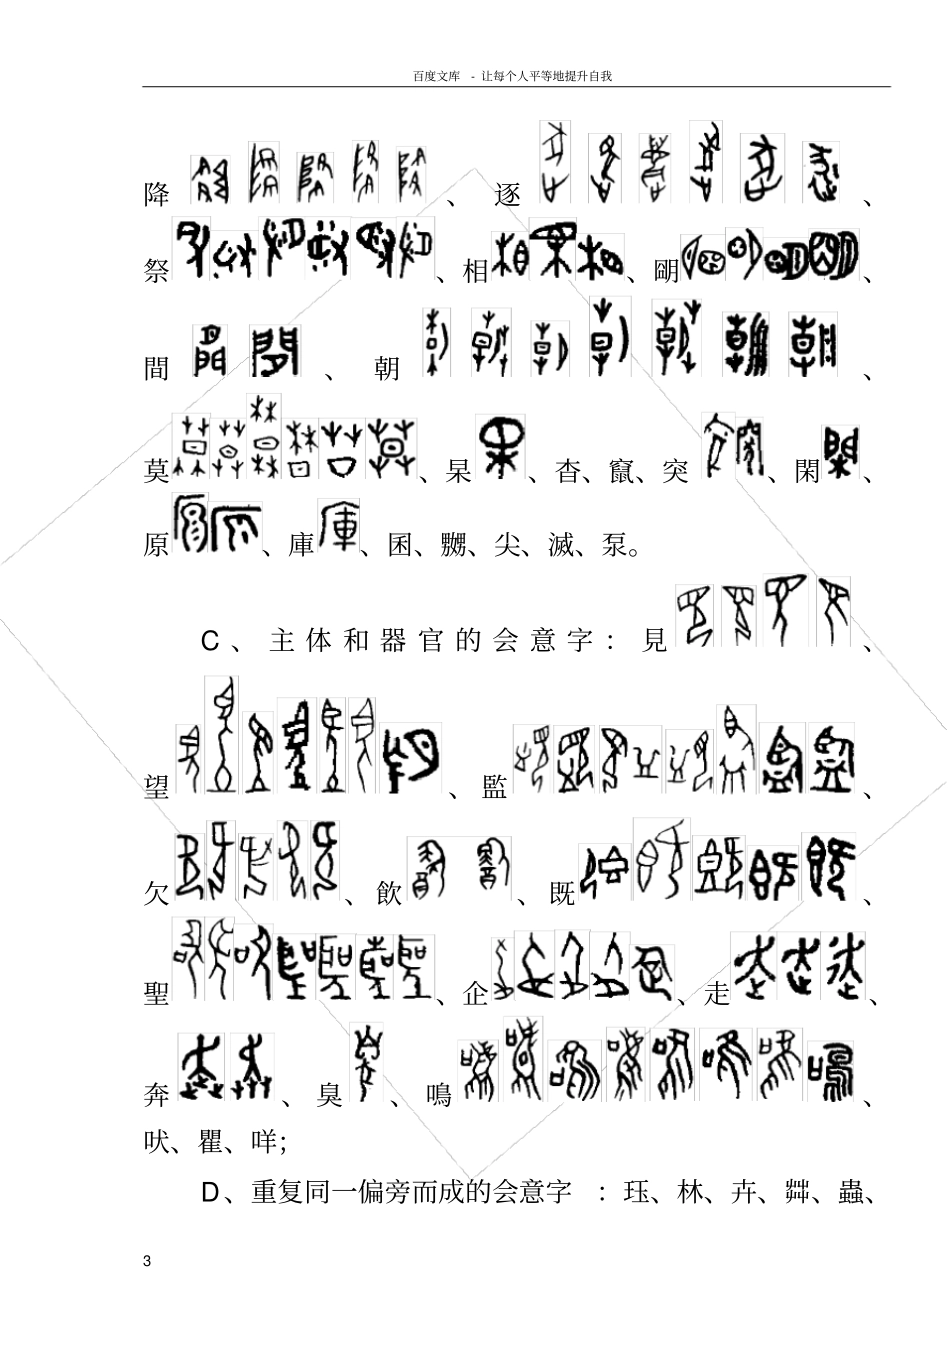 百度文库 - 让每个人平等地提升自我
降、逐、
祭、相、朙、
間、朝、
莫、杲、杳、竄、突、閑、
原、庫、困、嬲、尖、滅、泵。
C、主体和器官的会意字：見、
望、監、
欠、飲、既、
聖、企、走、
奔、臭、鳴、
吠、瞿、咩；
D、重复同一偏旁而成的会意字：珏、林、卉、茻、蟲、
3